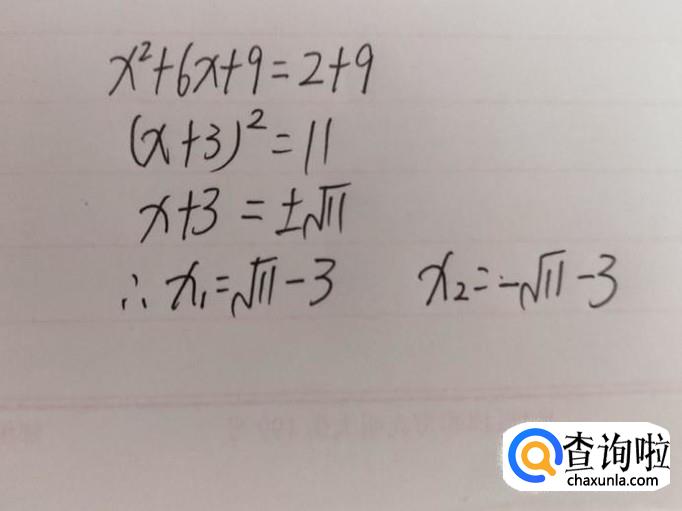 x²+6x+9=2+9
(x+3)²=11
x+3=±√11
∴x₁=√11-3 x₂=-√11-3
查询啦
chaxunla.com